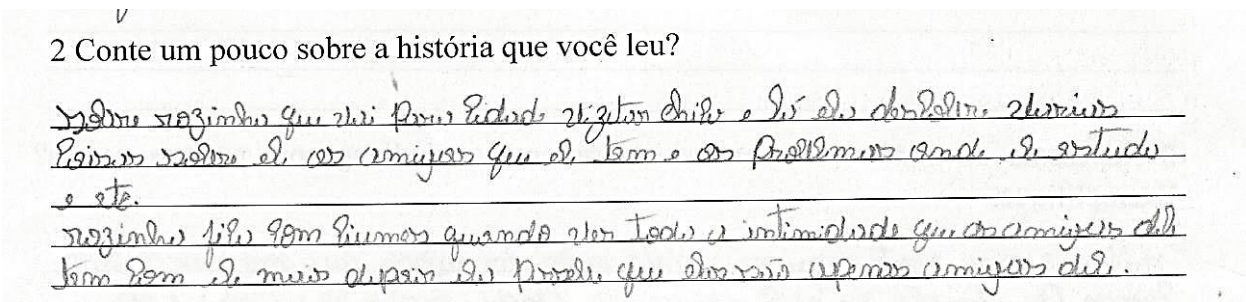 2 Conte um pouco sobre a história que você leu?
sobre rozinha que vai para cidade vizitar chico e lá ela descobre varias
coisas sobre ele as amigas que ele tem e os problemas onde ele estuda
e etc.
rozinha fica com ciumes quando ver toda a intimidade que as amigas dele
tem com ele mais depois ela percebe que elas são apenas amigas dele.